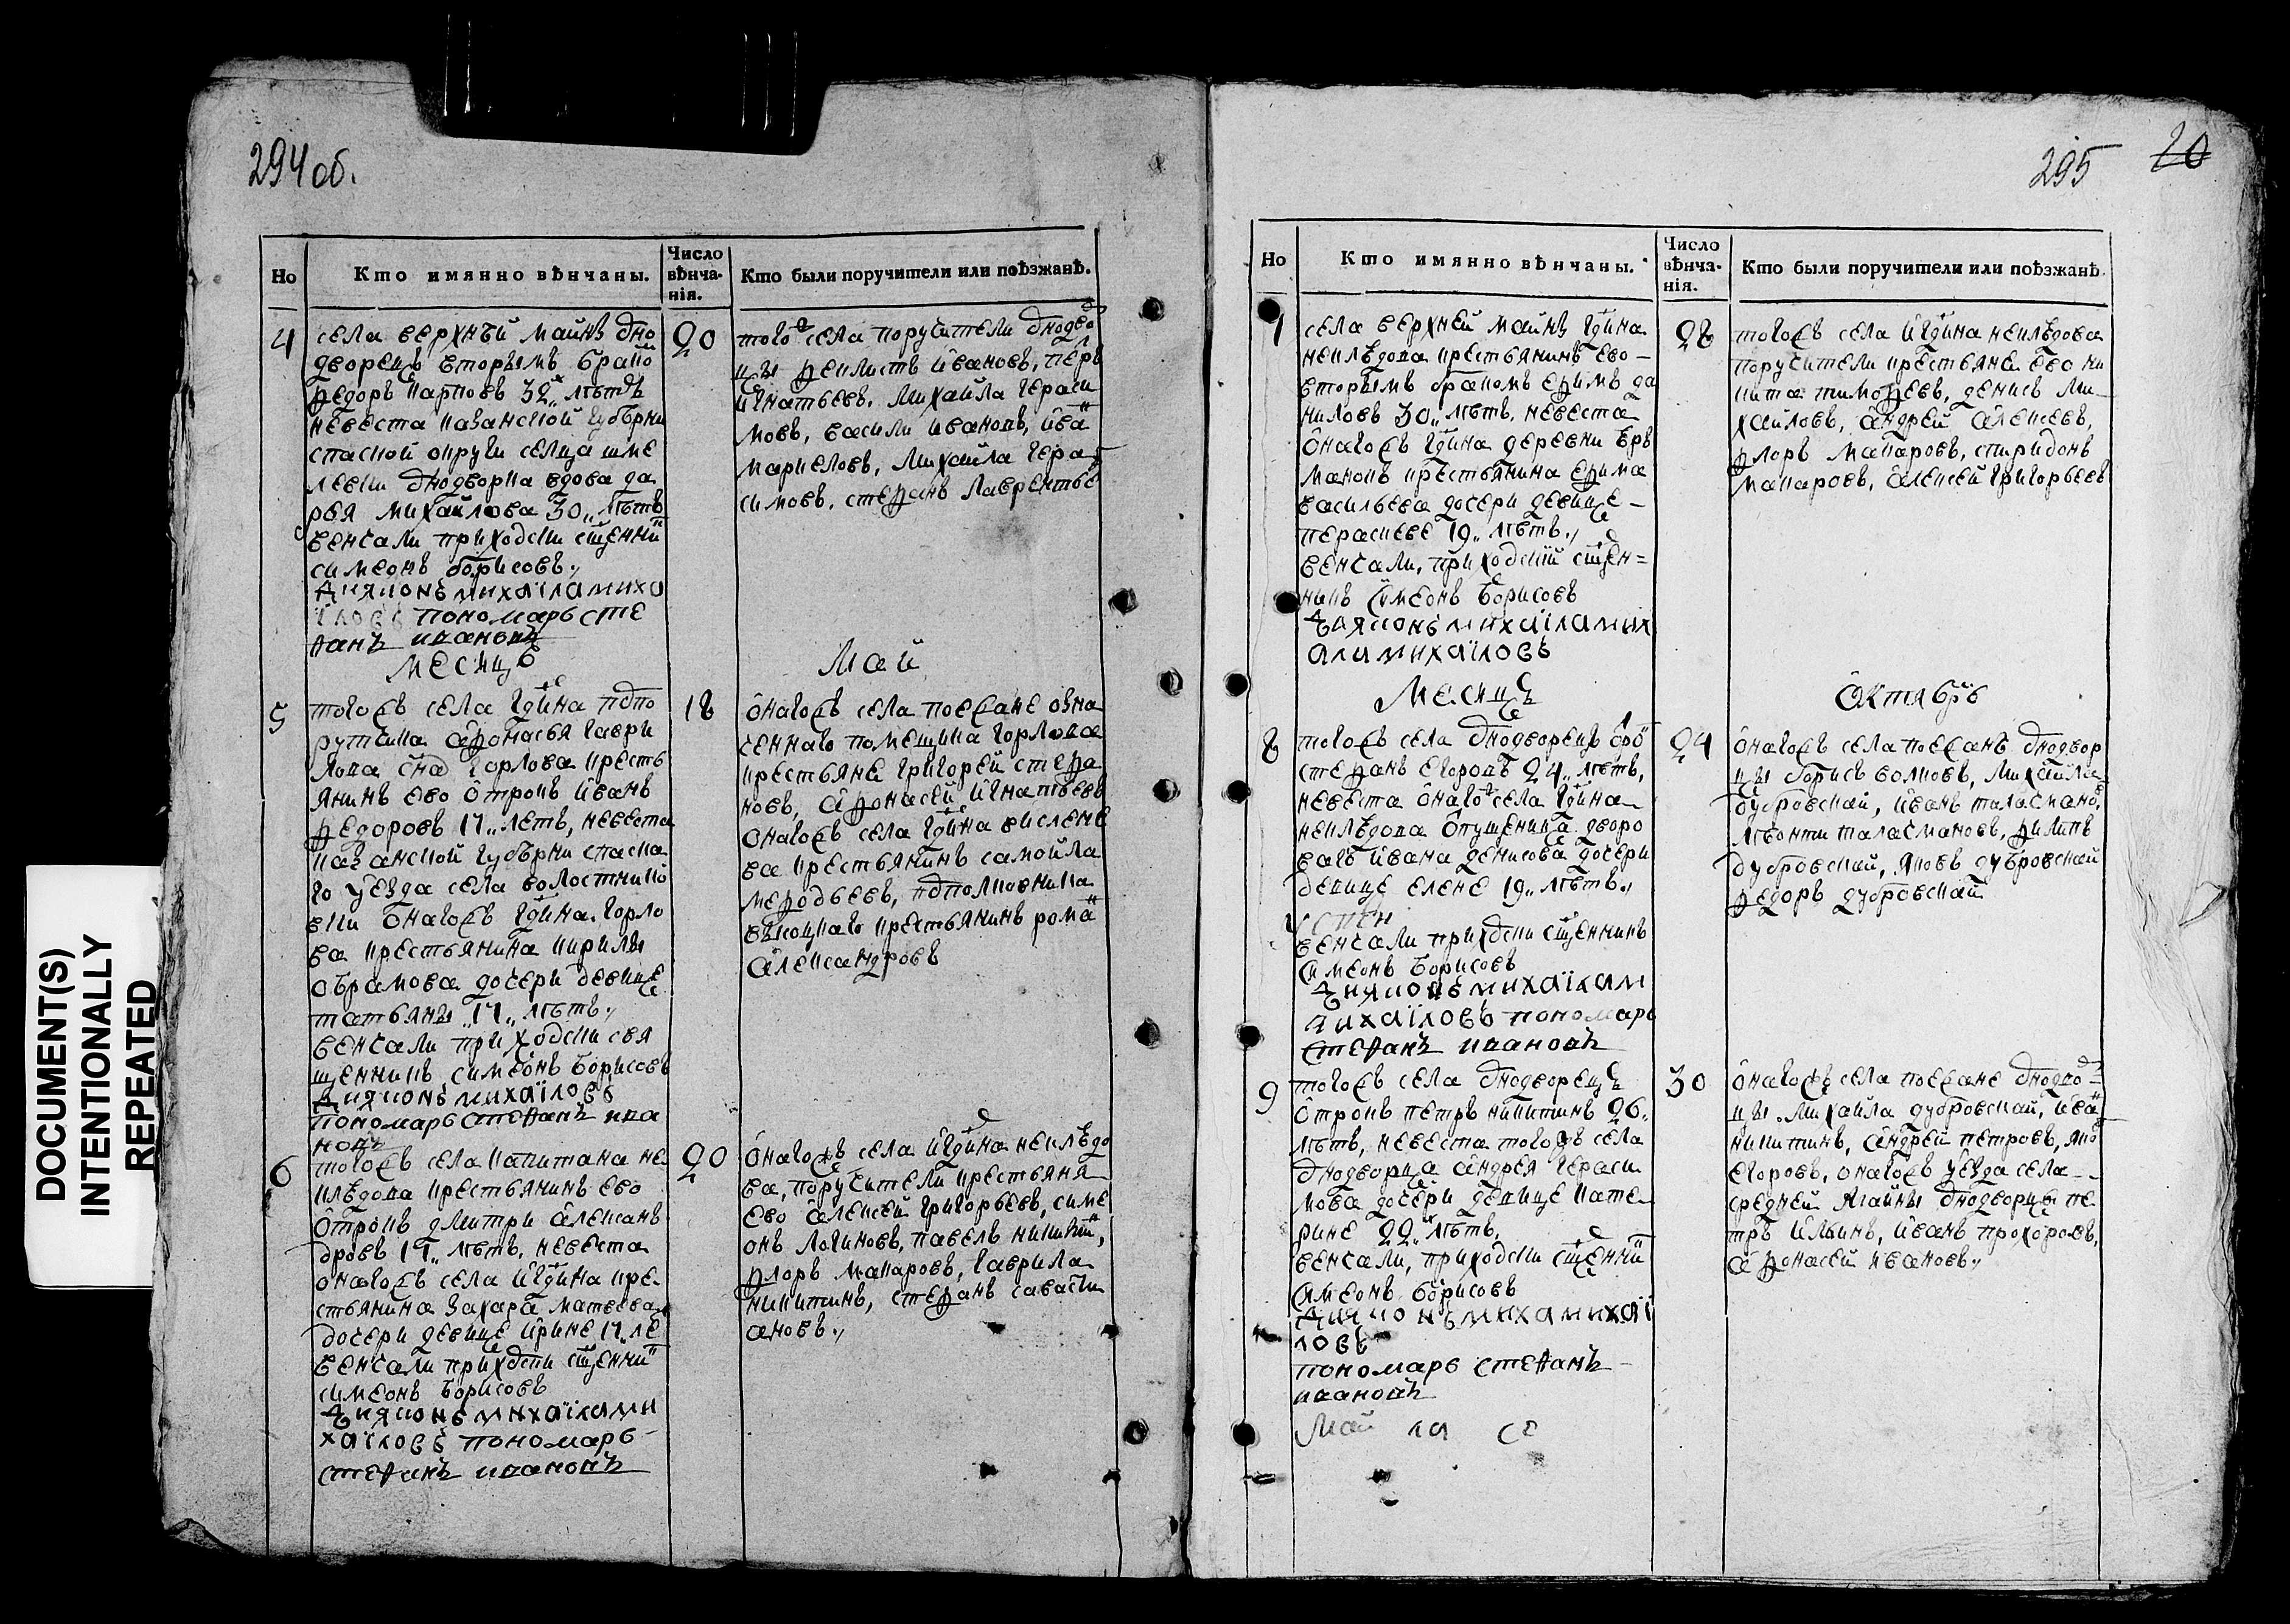 294 об.
Но
Кто имянно вѣнчаны.
Число
вѣнча-
нія.
Кто были поручители или поѣзжанѣ.
4
села верхней майнѣ дно
дворецъ вторымъ брако
федоръ карповъ 32 лѣтъ
невеста казанской губерни
спаской округи селца шме
левки днодворка вдова да
рья михайлова 30,, лѣтъ
венчали приходски сщенни
симеонъ борисовъ,,
дияконъ михаила миха
иловъ пономарь сте
ѳанъ ивановъ
20
того села поручители днодво
цы феклистъ ивановъ, петръ
игнатьевъ, михайла гераси
мовъ, васили ивановъ, ива
маркеловъ, михайла гера
симовъ, стефанъ лаврентье
месицъ
май
5
тогожъ села гдина подпо
рутчика афонасья гаври
лова сна горлова кресть
янинъ ево отрокъ иванъ
федоровъ 17,, летъ, невеста
казанской губерни спаска
го уезда села волостнико
вки онагожъ гдина горло
ва крестьянина кирилы
обрамова дочери девице
татьяны ,,17,, лѣтъ,,
венчали приходски свя
щенникъ симеонъ борисовъ
дияконъ михаїловъ
пономарь стеѳанъ ива
новъ
18
онагожъ села поезжане озна
ченнаго помещика горлова
крестьяне григорей стефа
новъ, афонасей игнатьевъ
онагожъ села гдина вислене
ва крестьянинъ самойла
мефодьевъ, подполковника
крестьянинъ рома
александровъ
6
тогожъ села капитана не
клѣдова крестьянинъ ево
отрокъ дмитри алексан
дровъ 17,, лѣтъ, невеста
онагожъ села игдина кре
стьянина захара матвева
дочери девице ирине 17,, ле
венчали приходски сщенни
симеонъ борисовъ
дияконъ михаїла ми
хаїловъ пономарь
стеѳанъ ивановъ
20
онагожъ села игдина неклѣдо
ва, поручители крестьяня
ево алексей григорьевъ, симе
онъ логиновъ, павелъ никити,
флоръ макаровъ, гаврила
никитинъ, стефанъ савасти
ановъ,,
295
20
Но
Кто имянно вѣнчаны.
Число
вѣнча-
нія.
Кто были поручители или поѣзжанѣ.
7
села верхней майнѣ гдина
неклѣдова крестьянинъ ево
вторымъ бракомъ ефимъ да
ниловъ 30,, лѣтъ, невеста
онагожъ гдина деревни
крестьянина ефима
васильева дочери девице
пераскеве 19,, лѣтъ,,
венчали, приходский сщен=
никъ симеонъ борисовъ
дияконъ михаїла мих
аила михаїловъ
28
тогожъ села игдина неклѣдова
поручители крестьяне ево ни
кита тимофеевъ, денисъ ми
хайловъ, андрей алексеевъ,
флоръ макаровъ, спиридонъ
макаровъ, алексей григорьевъ
месицъ
октябрь
8
тогожъ села днодворецъ
стефанъ егоровъ 24,, лѣтъ,
невеста онаго села гдина
неклѣдова опущеника дворо
ваго ивана денисова дочери
девице елене 19,, лѣтъ,,
венчали приходски сщенникъ
симеонъ борисовъ
дияконъ михаїла м
михаїловъ пономарь
стеѳанъ ивановъ
24
онагожъ села поезжанѣ днодвор
цы борисъ волковъ, михайла
дубровскай, иванъ таласмано,
леонти таласмановъ, филипъ
дубровскай, яковъ дубровскай
федоръ дубровскай
9
тогожъ села днодворецъ
отрокъ петръ никитинъ 26,,
лѣтъ, невеста тогожъ села
днодворца андрея гераси
мова дочери девице кате
рине 22,, лѣтъ,
венчали, приходски сщенни
симеонъ борисовъ
дияконъ миха михаї
ловъ
пономарь стеѳанъ
ивановъ
30
онагожъ села поезжане днодво
цы михайла дубровскай, ива
никитинъ, андрей петровъ, яко
егоровъ, онагожъ уезда села
средней днодворцы пе
тръ ильинъ, иванъ прохоровъ,
афонасей ивановъ,,
май
DOCUMENT(S)
INTENTIONALLY
REPEATED